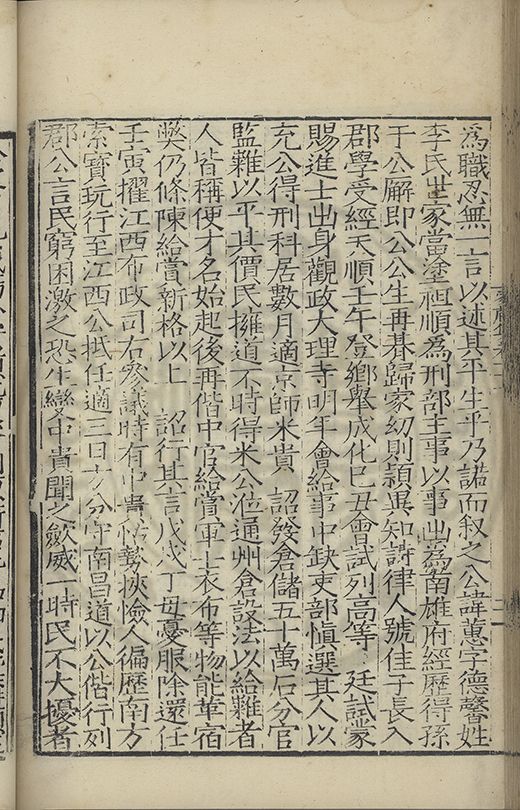 為職忍無一言以述其平生乎乃諾而叙之公諱蕙字德馨姓
李氏世家當塗祖順為刑部主事以事出為南雄府經歷得孫
于公廨即公公生再朞歸家幼則頴異知詩律人號佳子長入
郡學受經天順壬午登鄉舉成化己丑會試列高等 廷試蒙
賜進士出身觀政大理寺明年會給事中缺吏部慎選其人以
充公得刑科居數月適京師米貴 詔發倉儲五十萬石分官
監糶以平其價民擁道不時得米公涖通州倉設法以給糶者
人皆稱便才名始起後再偕中官給賞軍士衣布等物能革宿
弊仍條陳給賞新格以上 詔行其言戊戌丁母憂服除還任
壬寅擢江西布政司右參議時有中貴怙勢挾憸人徧歷南方
索寶玩行至江西公抵任適三日方分守南昌道以公偕行列
郡公言民窮困激之恐生變中貴聞之歛威一時民不大擾者